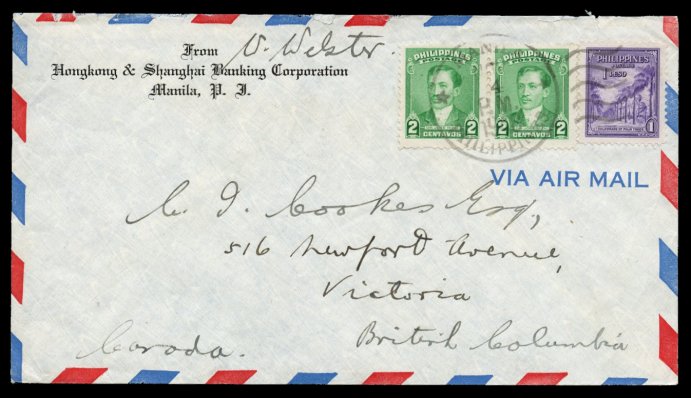 W. Webster.
From
Hongkong & Shanghai Banking Corporation
Manila, P. I.
PHILIPPINES
POSTAGE
2 2
CENTAVOS
PHILIPPINES
POSTAGE
2 2
CENTAVOS
PHILIPPINES
1 PESO
1
VIA AIR MAIL
C. I. Cookes Esq,
516 Newport Avenue,
Victoria
British Columbia
Canada.